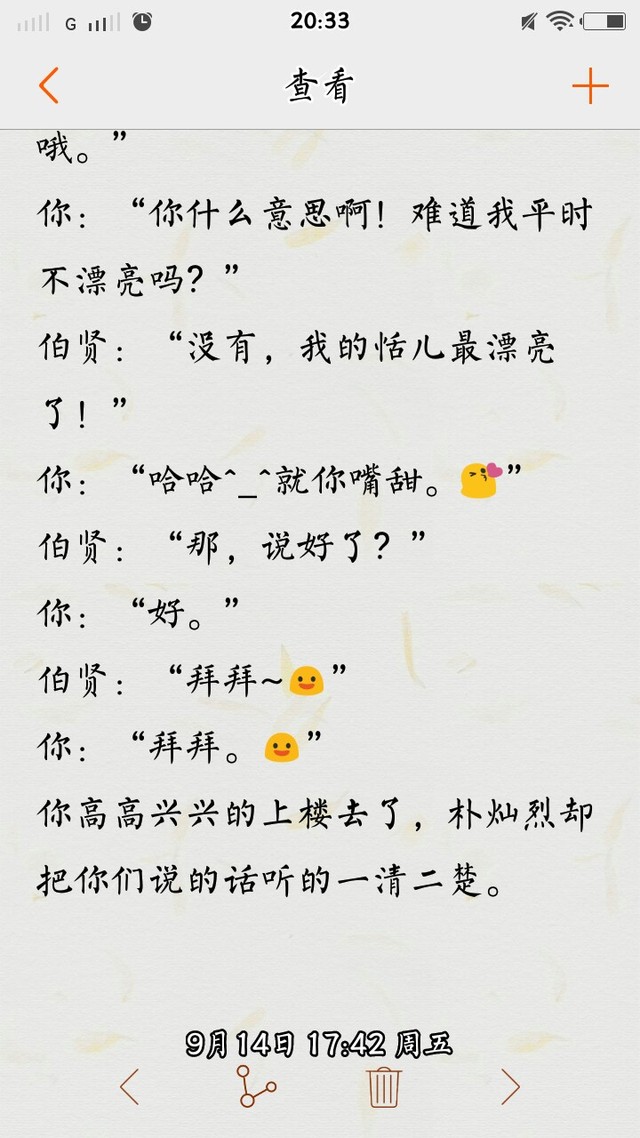 G 20:33
查看
哦。”
你：“你什么意思啊！难道我平时
不漂亮吗？”
伯贤：“没有，我的恬儿最漂亮
了！”
你：“哈哈^_^就你嘴甜。😘”
伯贤：“那，说好了？”
你：“好。”
伯贤：“拜拜~😃”
你：“拜拜。😃”
你高高兴兴的上楼去了，朴灿烈却
把你们说的话听的一清二楚。
9月14日 17:42 周五